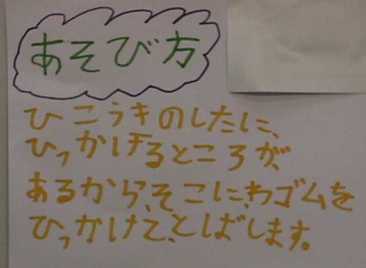 あそび方
ひこうきのしたに、
ひっかけるところが、
あるから、そこにわゴムを
ひっかけて、とばします。